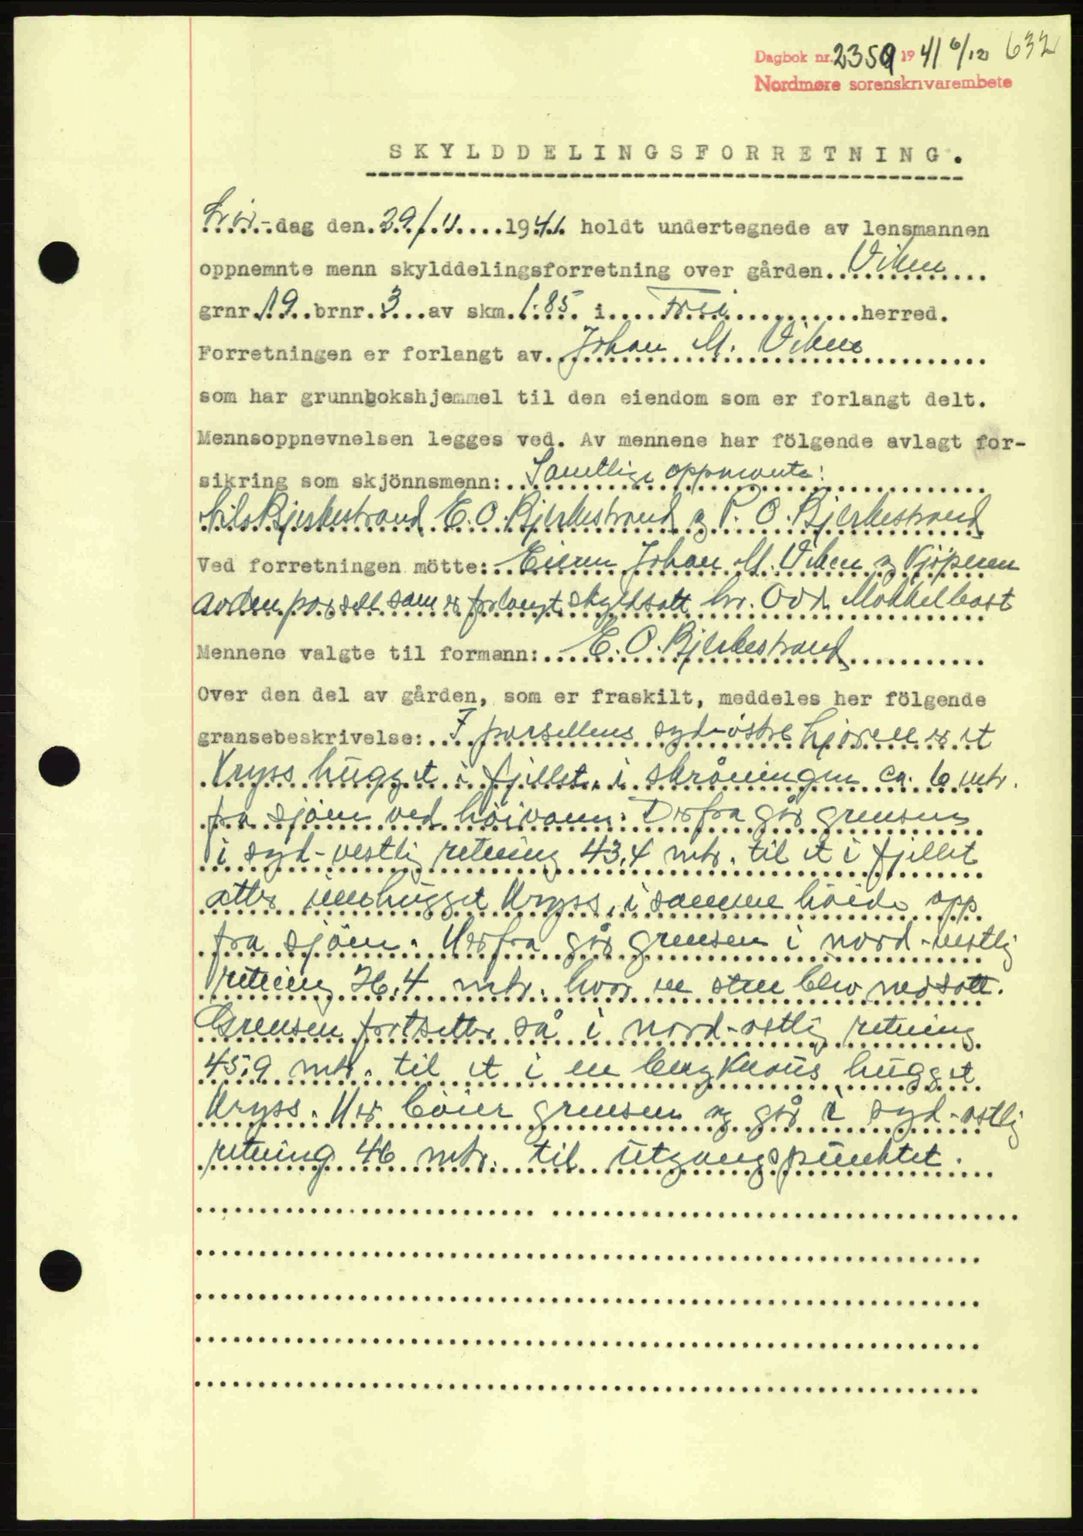 Dagbok nr. 2359 1941 6/12 632
Nordmøre sorenskrivarembete
SKYLDDELINGSFORRETNING.
Lør-dag den 29/11 1941 holdt undertegnede av lensmannen
oppnemnte menn skylddelingsforretning over gården Viken
grnr. 19 brnr. 3 av skm. 1.85 i Frei herred.
Forretningen er forlangt av Johan M. Viken
som har grunnbokshjemmel til den eiendom som er forlangt delt.
Mennsoppnevnelsen legges ved. Av mennene har fölgende avlagt for-
sikring som skjönnsmenn: Samtlige oppnevnte:
Nils Bjerkestrand E. O. Bjerkestrand og P. O. Bjerkestrand
Ved forretningen mötte: Eieren Johan M. Viken og kjöperen
av den parsell som er forlangt skyldsatt hr. Odd Mokkelbost
Mennene valgte til formann: E. O. Bjerkestrand
Over den del av gården, som er fraskilt, meddeles her fölgende
gransebeskrivelse: I parsellens syd-östre hjörne er et
Kryss hugget i fjellet, i skråningen ca. 6 mtr.
fra sjöen ved höivann. Derfra går grensen
i syd-vestlig retning 43,4 mtr. til et i fjellet
atter innhugget Kryss, i samme höide opp
fra sjöen. Herfra går grensen i nord-vestlig
retning 36,4 mtr. hvor en sten blev nedsatt.
Grensen fortsetter så i nord-ostlig retning
45,9 mtr. til et i en bergknaus hugget
Kryss. Her böier grensen og går i syd-ostlig
retning 46 mtr. til utgangspunktet.